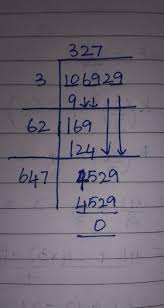 327
3 106929
9↓↓
62 169
124↓↓
647 4529
4529
0